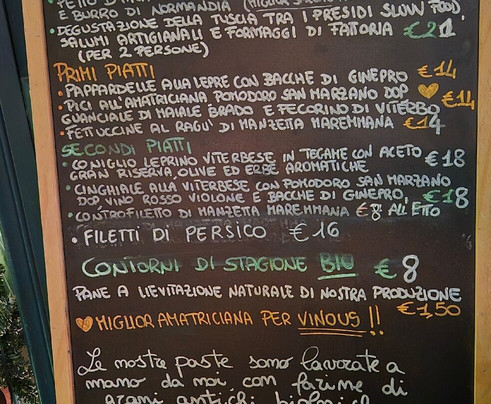 E BURRO DI NORMANDIA
• DEGUSTAZIONE DELLA TUSCIA TRA I PRESIDI SLOW FOOD,
SALUMI ARTIGIANALI E FORMAGGI DI FATTORIA €21
(PER 2 PERSONE)
PRIMI PIATTI
• PAPPARDELLE ALLA LEPRE CON BACCHE DI GINEPRO €14
• PICI ALL'AMATRICIANA POMODORO SAN MARZANO DOP €14
GUANCIALE DI MAIALE BRADO E PECORINO DI VITERBO
• FETTUCCINE AL RAGU' DI MANZETTA MAREMMANA €14
SECONDI PIATTI
• CONIGLIO LEPRINO VITERBESE IN TEGAME CON ACETO €18
GRAN RISERVA, OLIVE ED ERBE AROMATICHE
• CINGHIALE ALLA VITERBESE CON POMODORO SAN MARZANO
DOP, VINO ROSSO VIOLONE E BACCHE DI GINEPRO, €18
• CONTROFILETTO DI MANZETTA MAREMMANA €8 ALL'ETTO
• FILETTI DI PERSICO €16
CONTORNI DI STAGIONE BIO €8
PANE A LIEVITAZIONE NATURALE DI NOSTRA PRODUZIONE
€1,50
MIGLIOR AMATRICIANA PER VINOUS!!
Le nostre paste sono lavorate a
mano da noi con farine di
grani antichi biologici